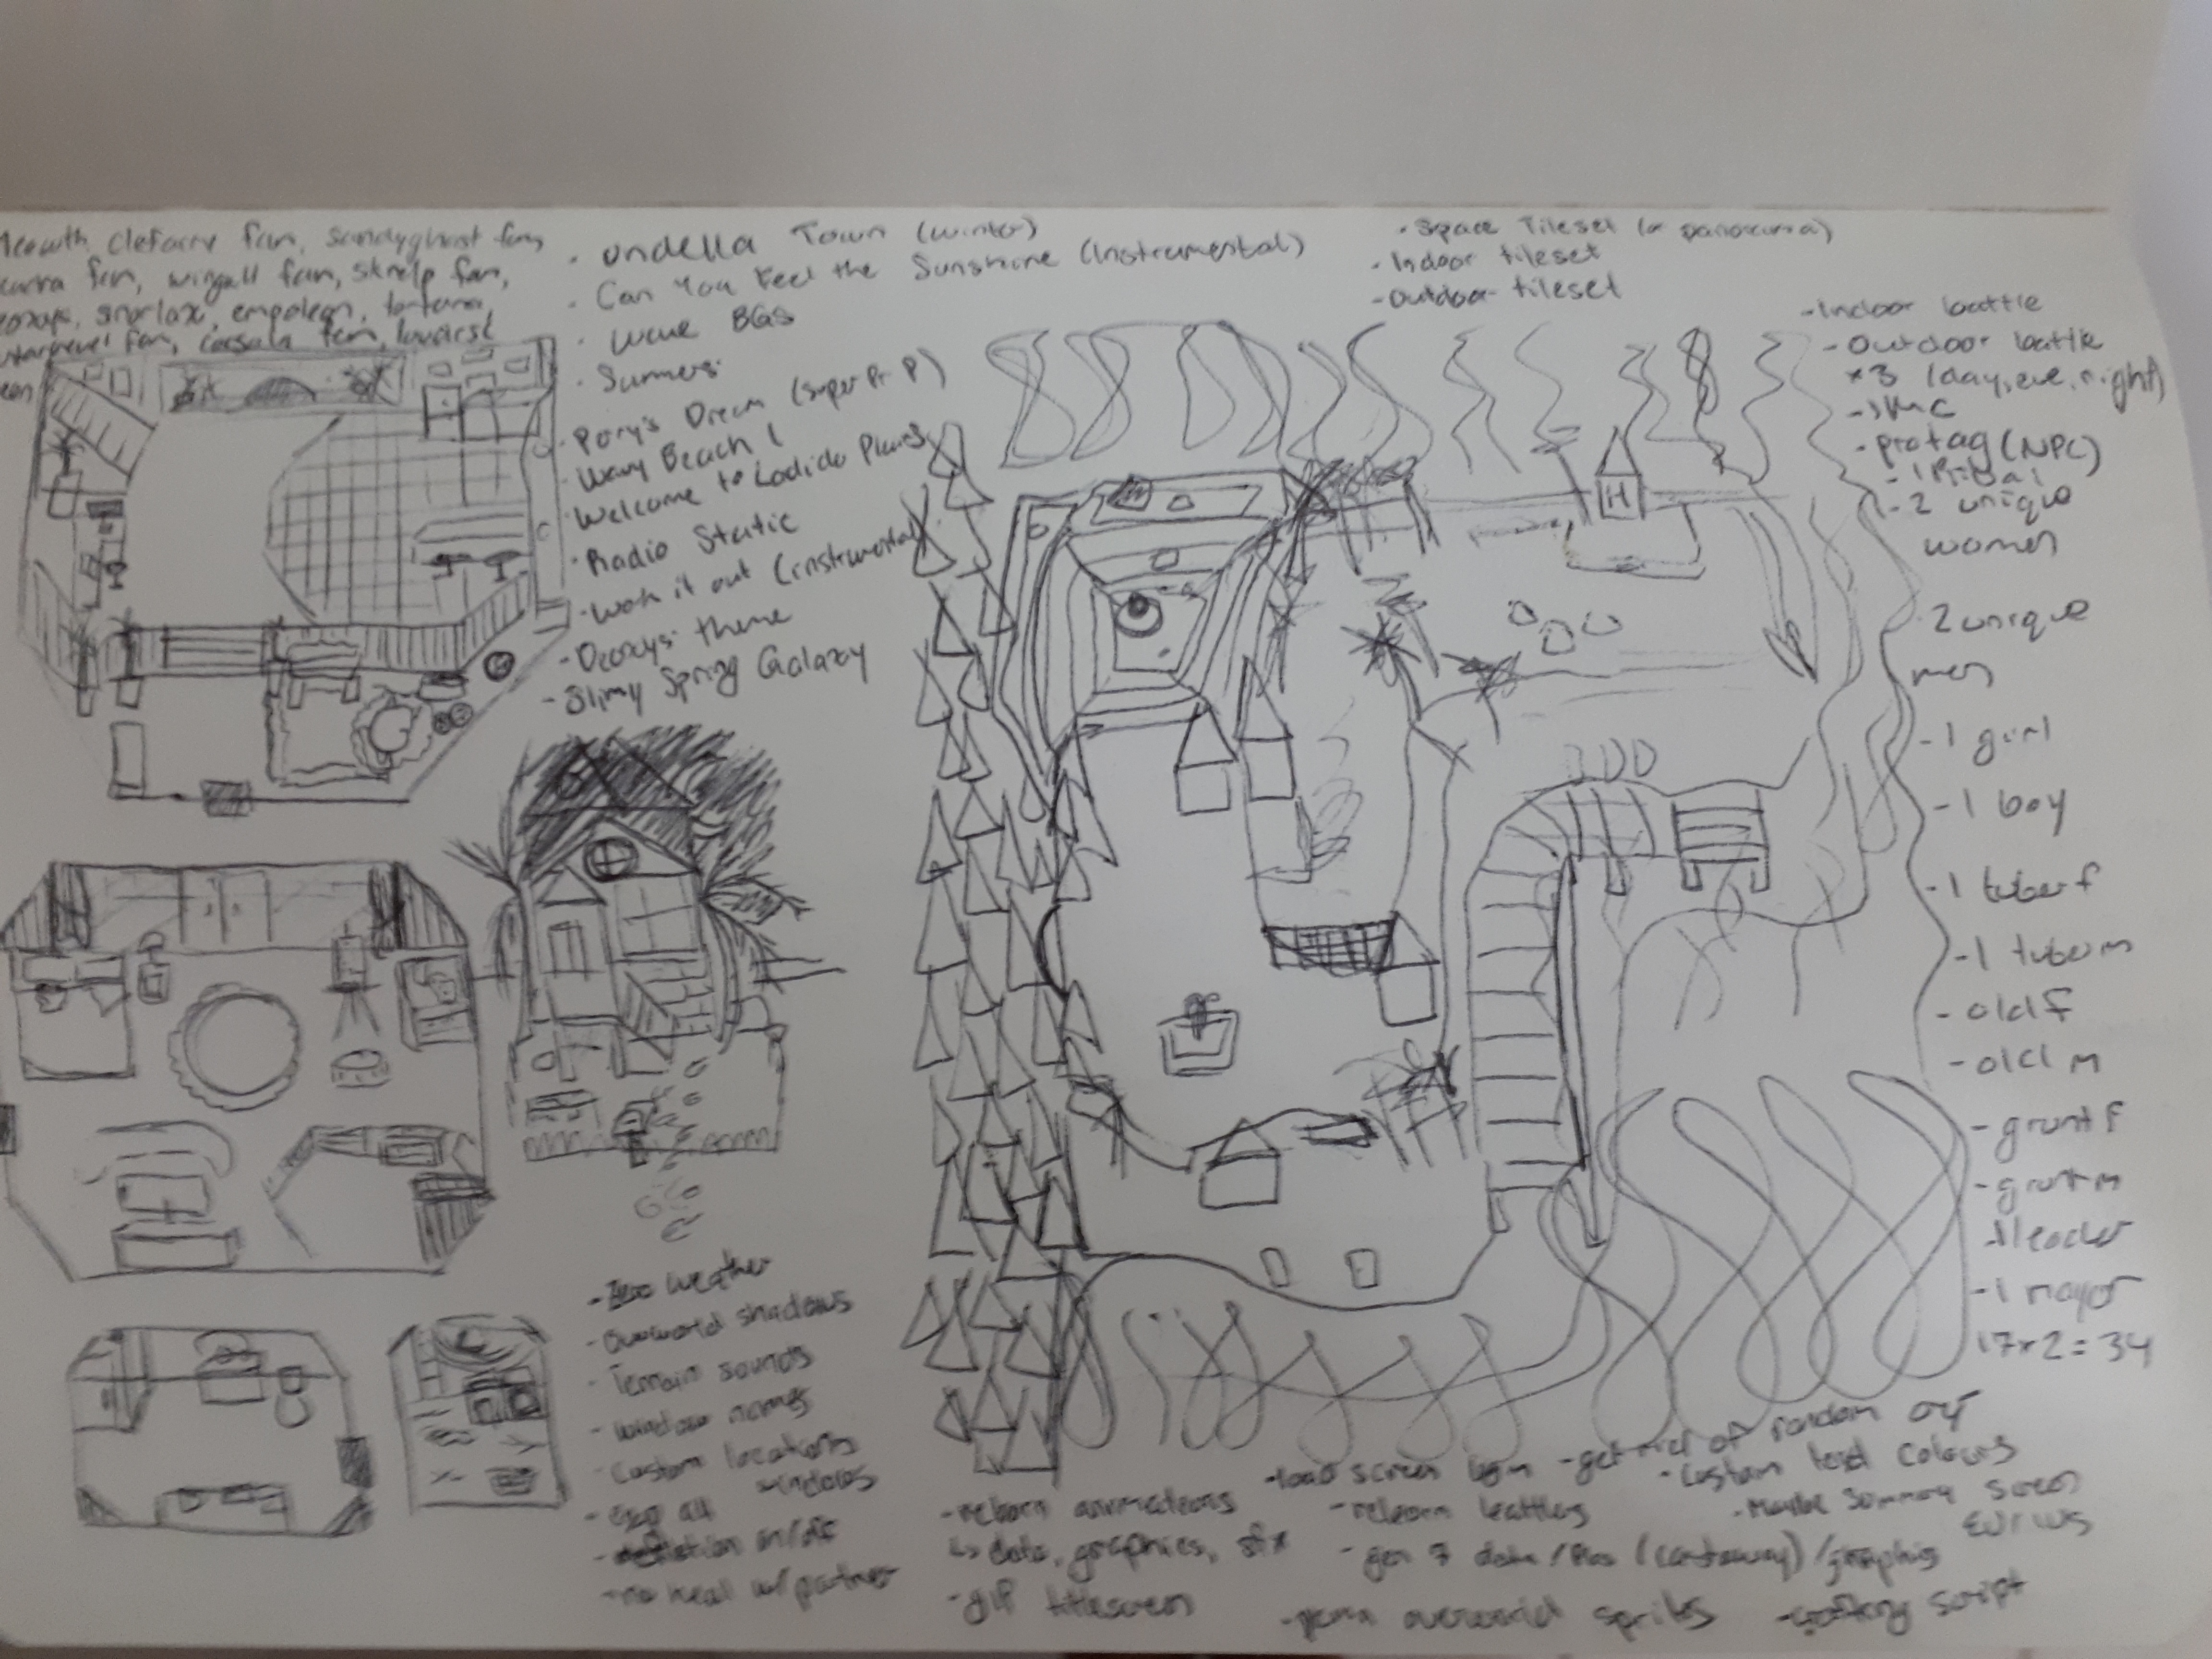 Meowth, clefairy fan, sandyghast fan,
fan, wingull fan, skrelp fan,
snorlax, empoleon,
fan, corsola fan,
· Undella Town (winter)
· Can You Feel the Sunshine (Instrumental)
· wave BGS
· Summers
· Pory's Dream (super P)
· Wavy Beach 1
· Welcome to Ladida Plains
· Radio Static
· Work it out (instrumental)
- Deoxys theme
- Slimy Spring Galaxy
- Space Tileset (or panorama)
- Indoor tileset
- Outdoor tileset
- Indoor battle
- Outdoor battle
x3 (day, eve, night)
- 1 MC
- protag (NPC)
- 1 Rival
- 2 unique
women
2 unique
men
- 1 girl
- 1 boy
- 1 tuber f
- 1 tuber m
- old f
- old m
- grunt f
- grunt m
- 1 leader
- 1 mayor
17x2=34
H
- weather
- overworld shadows
- Terrain sounds
- window names
- custom locations
windows
- exp all
- on/off
- no heal w/partner
- reborn animations
↳ data, graphics, sfx
- gif titlescreen
- load screen bgm
- get rid of random
- custom text colours
- Maybe Summary screen
- gen 7 data / /graphics
- overworld sprites
- script